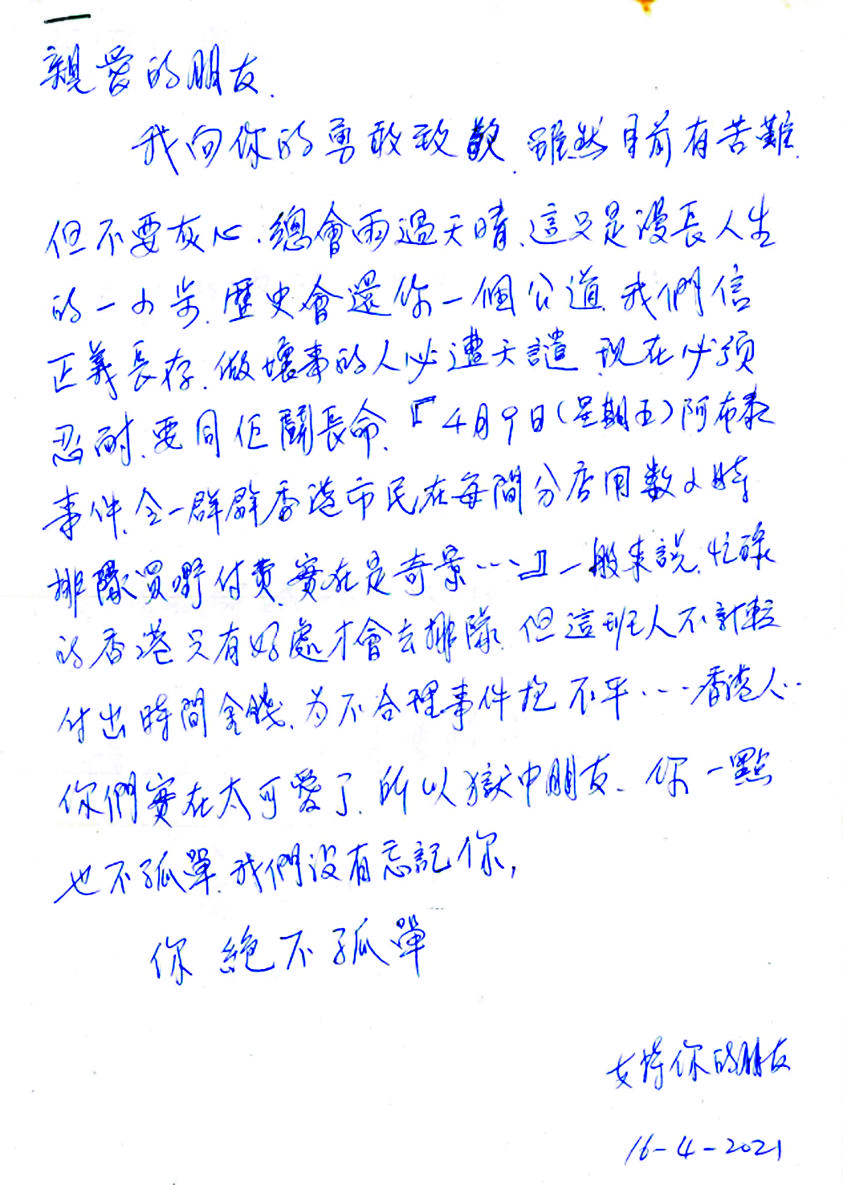 親愛的朋友.
我向你的勇敢致歉.雖然目前有苦難.
但不要灰心.總會雨過天晴.這只是漫長人生
的一小步.歷史會還你一個公道.我們信
正義長存.做壞事的人必遭天譴.现在必须
忍耐.要同佢鬭長命.『4月9日(星期五)阿布泰
事件.令一群群香港市民在每間分店用数小時
排隊買嘢付費.實在是奇景…』一般來説.忙碌
的香港只有好處才會去排隊.但這班人不計較
付出時間金錢.为不合理事件抱不平…香港人..
你們實在太可愛了.所以獄中朋友.你一點
也不孤單.我們没有忘記你,
你絕不孤單
支持你的朋友
16-4-2021